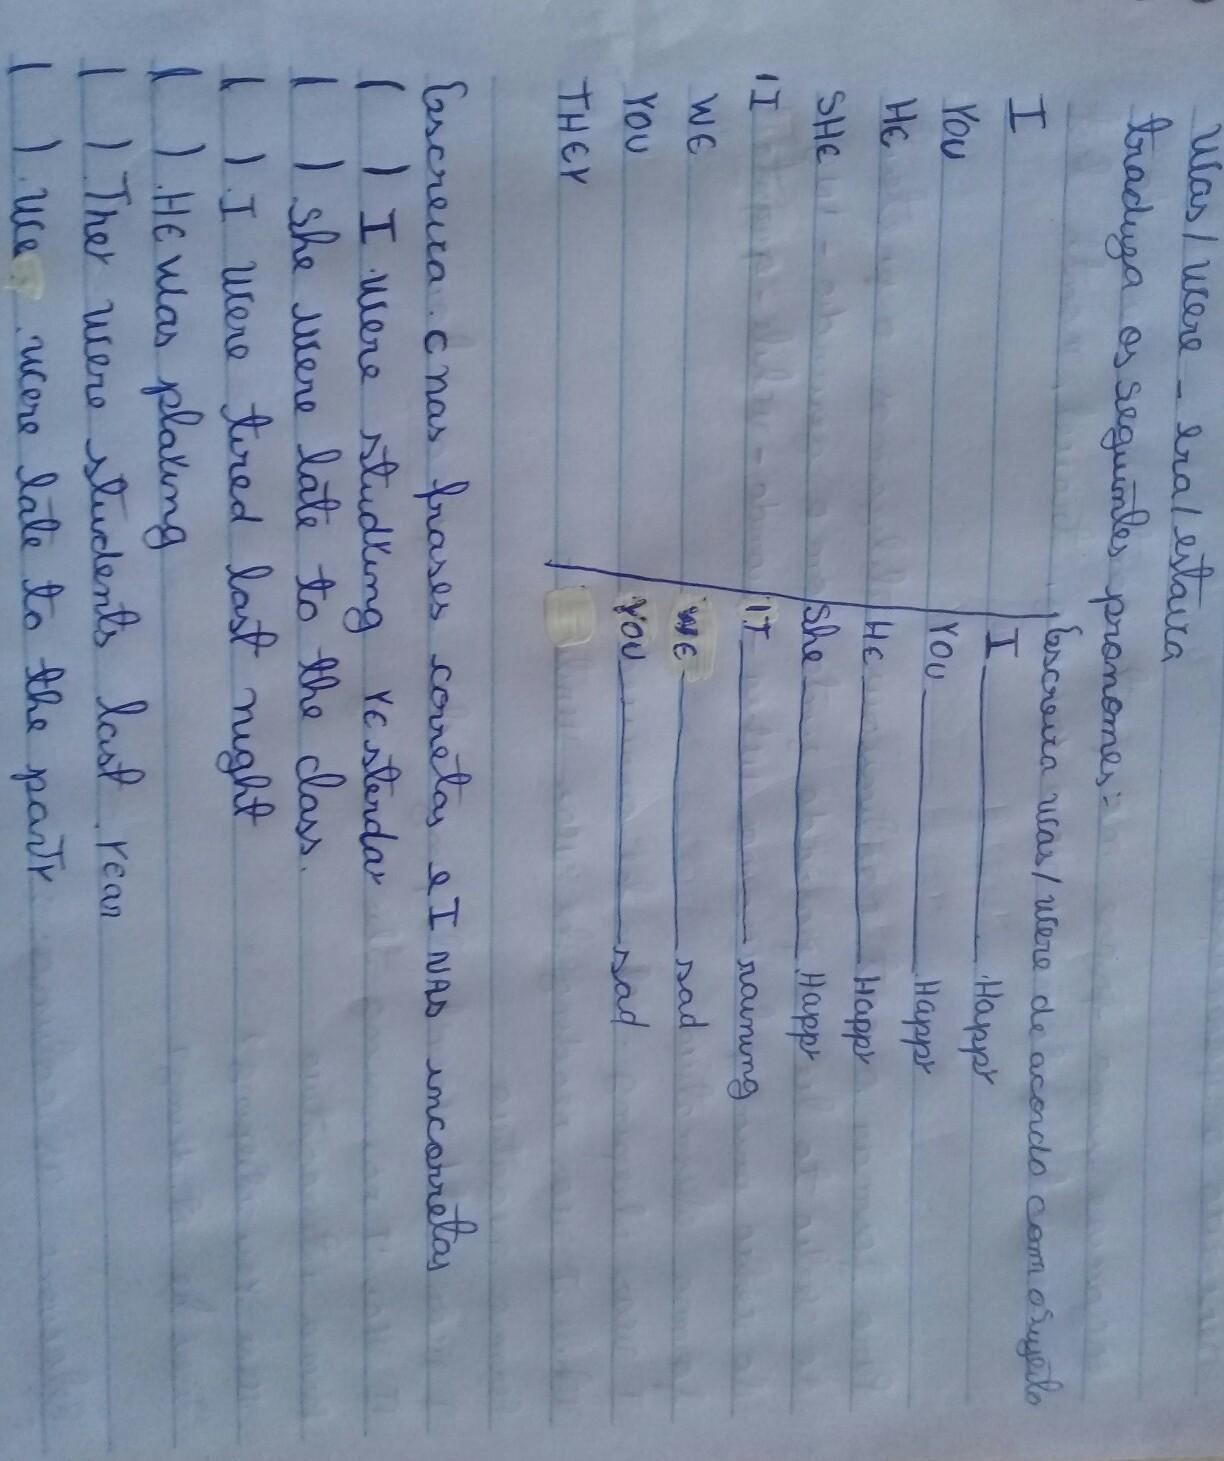 Was / were - era / estava
traduza os seguintes pronomes:
Escreva was / were de acordo com o sujeito
I
I ______ Happy
YOU
YOU ______ Happy
HE
HE ______ Happy
SHE
She ______ Happy
IT
IT ______ raining
WE
WE ______ sad
YOU
YOU ______ sad
THEY
Escreva C nas frases corretas e I NAS incorretas
( ) I were studying yesterday
( ) She were late to the class.
( ) I were tired last night
( ) HE was playing
( ) They were students last year
( ) We were late to the party